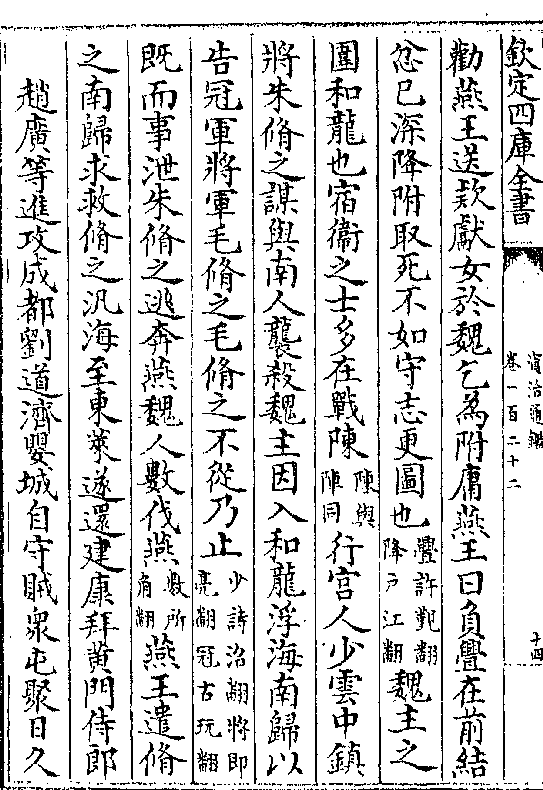 欽定四庫全書
資治通鑑
卷一百二十二
十四
勸燕王送欵獻女於魏乞為附庸燕王曰負釁在前結
忿已深降附取死不如守志更圖也釁許覲翻降戸江翻魏主之
圍和龍也宿衞之士多在戰陳陳與陣同行宫人少雲中鎮
將朱脩之謀與南人襲殺魏主因入和龍浮海南歸以
告冠軍將軍毛脩之毛脩之不從乃止少詩沼翻將即亮翻冠古玩翻
既而事泄朱脩之逃奔燕魏人數伐燕數所角翻燕王遣脩
之南歸求救脩之汎海至東萊遂還建康拜黄門侍郎
趙廣等進攻成都劉道濟嬰城自守賊衆屯聚日久